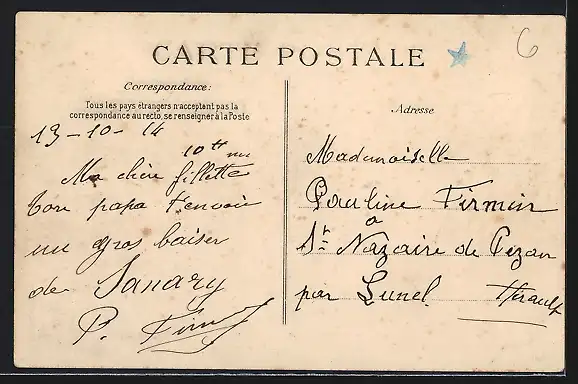 6
CARTE POSTALE
Correspondance:
Tous les pays étrangers n'acceptent pas la
correspondance au recto, se renseigner à la Poste
13-10-14
Ma chère fillette
ton papa t'envoie
un gros baiser
de Sanary
P. Firmin
Adresse
Mademoiselle
Pauline Firmin
a
St Nazaire de Pezan
par Lunel. Hérault